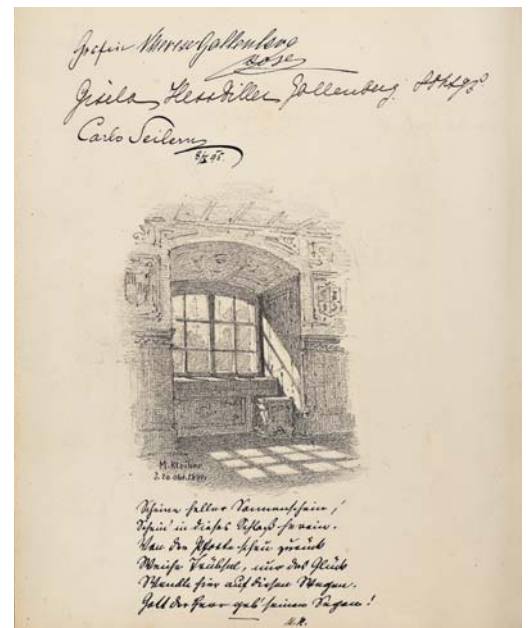 Gräfin Therese Gallenberg
Gisela Hess Diller Gallenberg
Carlo Seilern
8/X 95.
M. Kleiber
2.10 Okt. 189
Scheine heller Sonnenschein,
Schein' in dieses Schloß herein.
Von der Pforte scheu zurück
Weiche Trübsal, nur das Glück
Wandle hier auf diesen Wegen.
Gott der Herr geb' seinen Segen!
M.K.